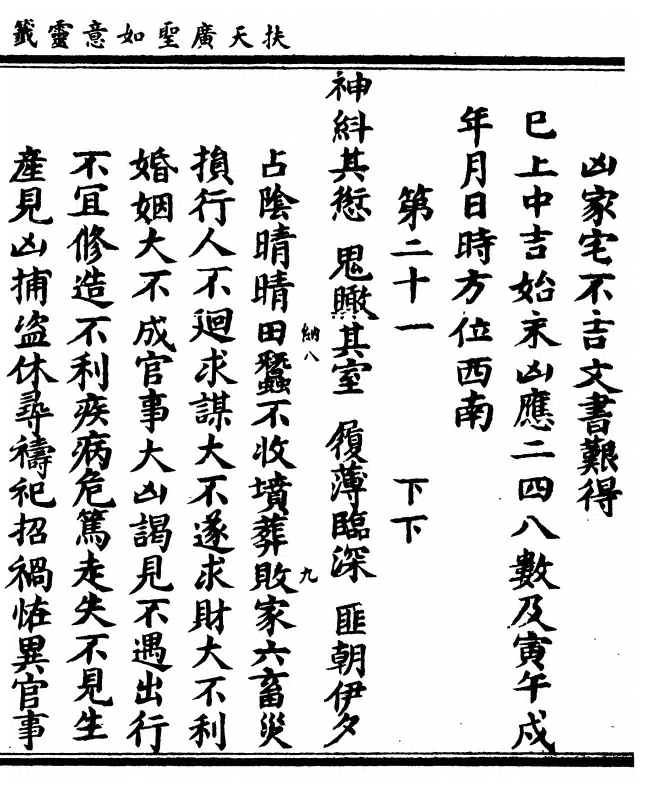 扶天廣聖如意靈籤
凶家宅不吉文書艱得
巳上中吉始末凶應二四八數及寅午戍
年月日時方位西南
第二十一　下下
神糾其愆　鬼瞰其室　履薄臨深　匪朝伊夕
占陰晴晴田蠶不收墳葬敗家六畜災
損行人不𢌞求謀大不遂求財大不利
婚姻大不成官事大凶謁見不遇出行
不宜修造不利疾病危篤走失不見生
產見凶捕盜休尋禱祀招禍怪異官事
納八
九